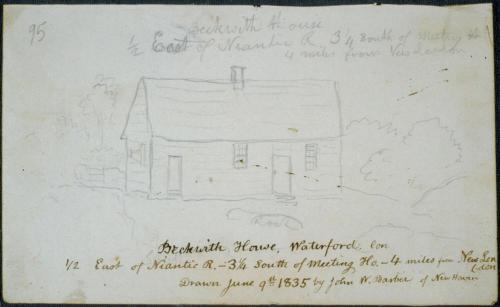 95
Beckwith House
1/2 East of Niantic R 3 1/4 South of Meeting Ho
4 miles from New London
Rock
Beckwith House, Waterford, Con
1/2 East of Niantic R. - 3 1/4 South of Meeting Ho. - 4 miles from New Lon
(don
Drawn June 9th 1835 by John W. Barber of New Haven